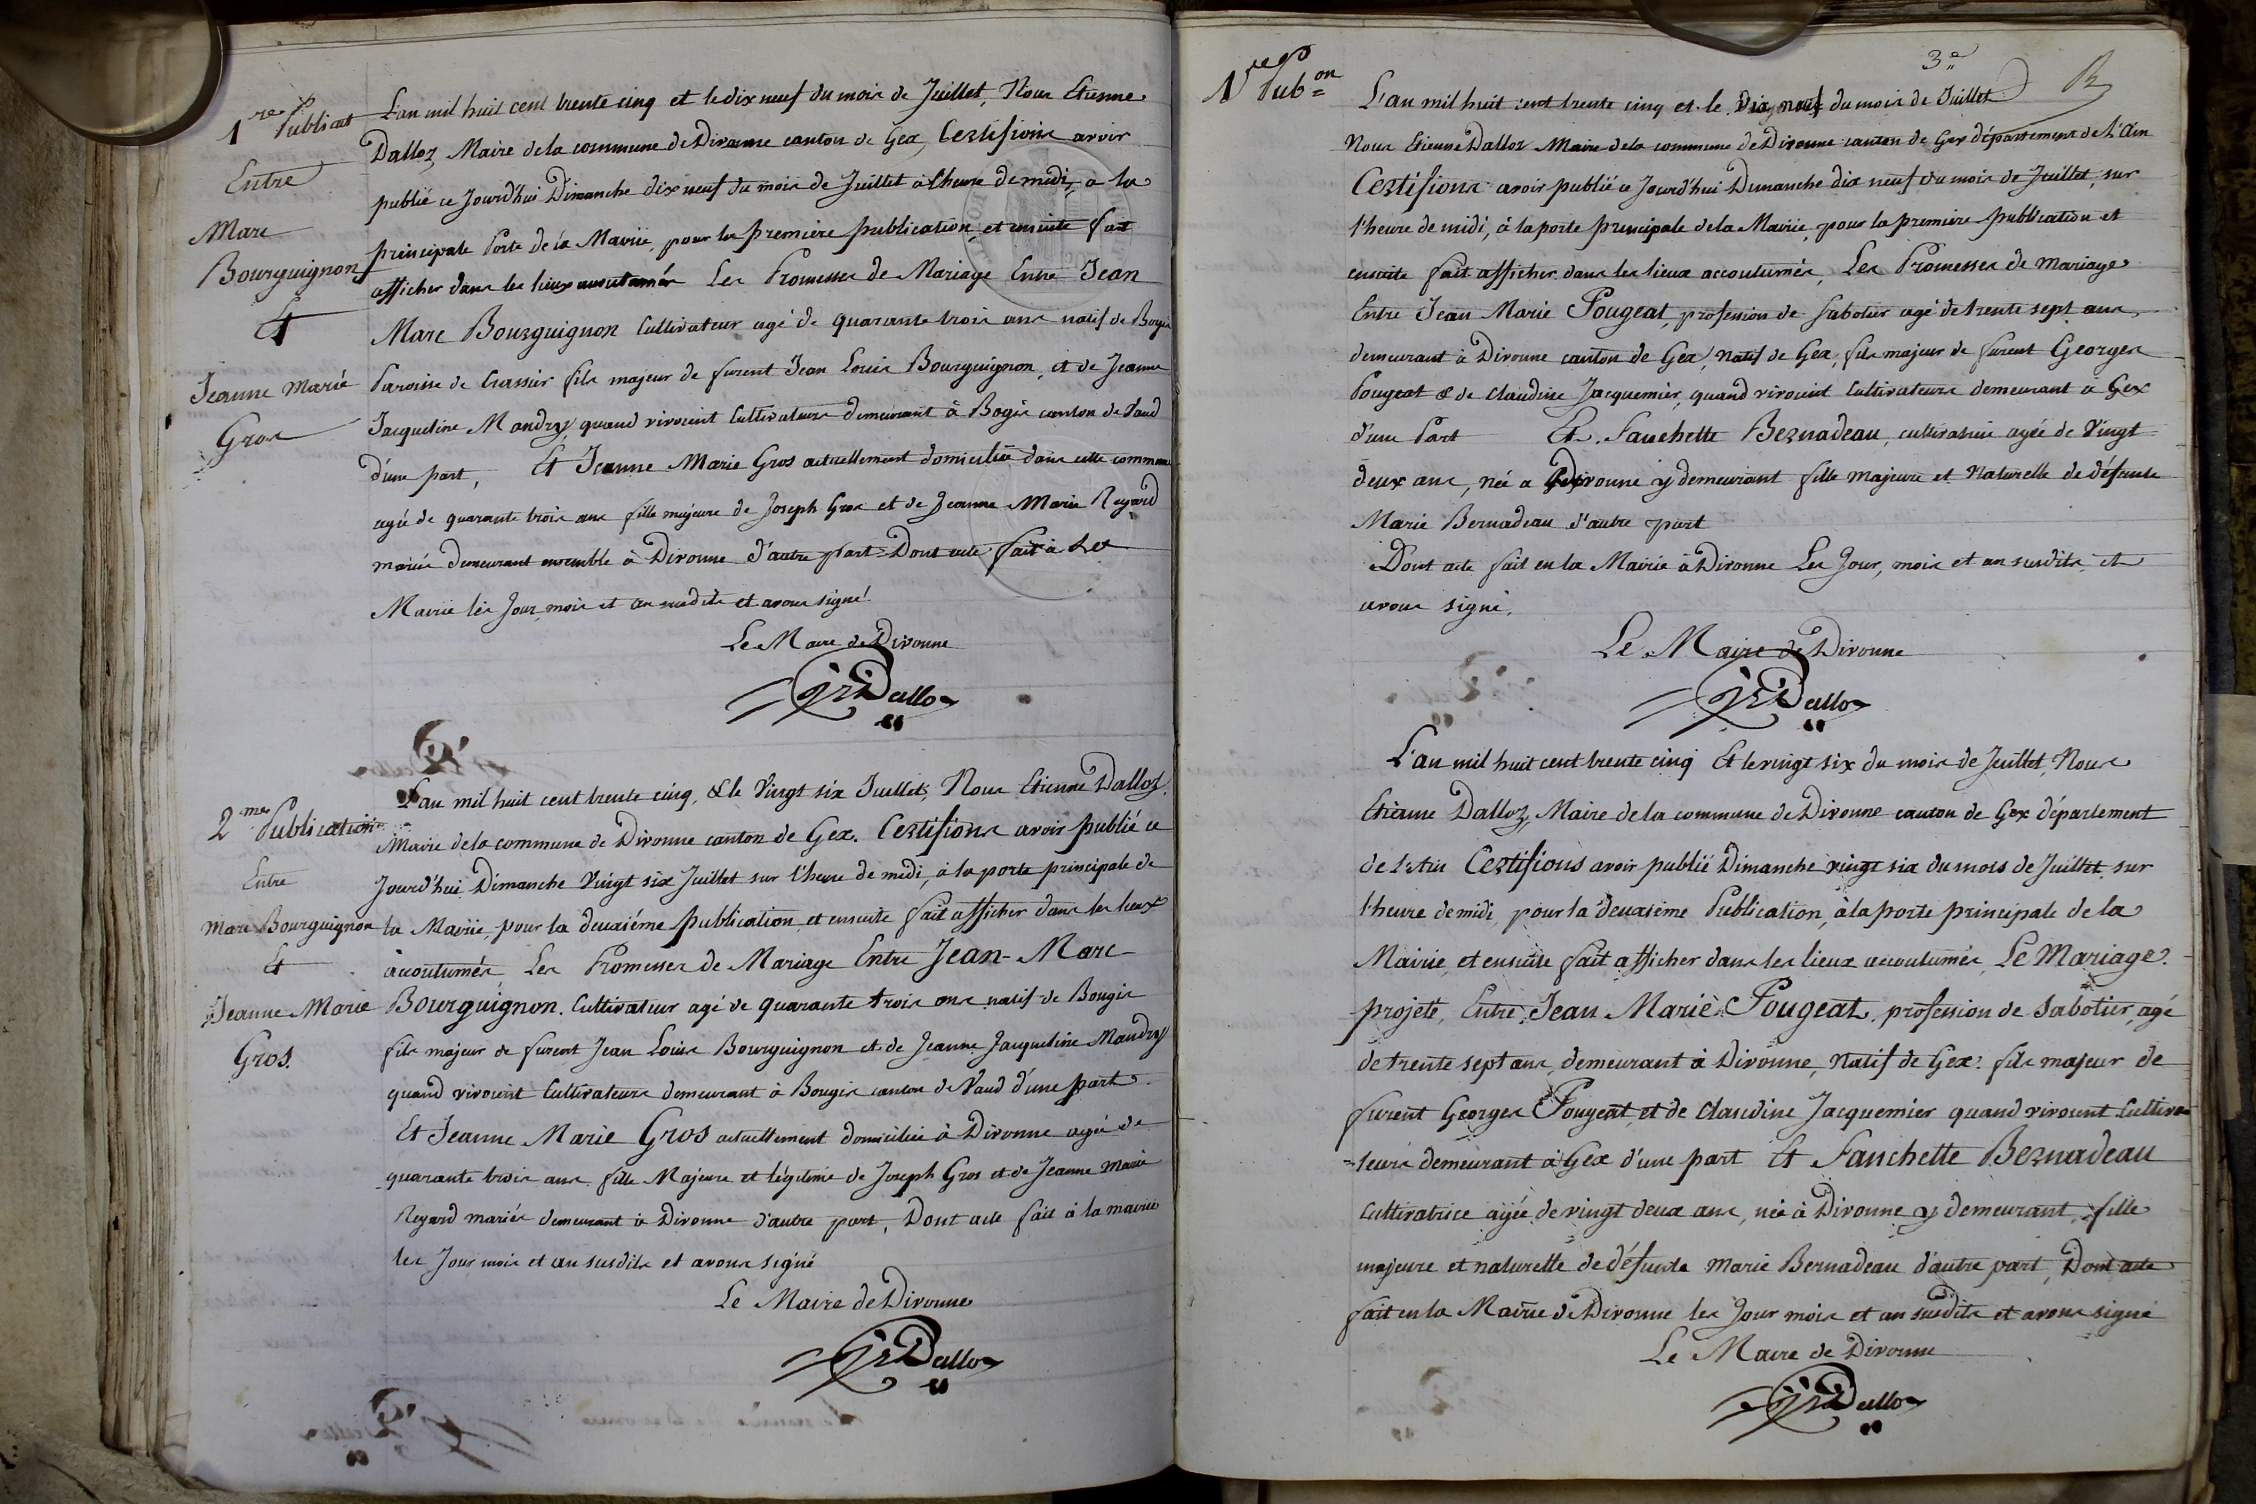 1re Publicat
Entre
Marc
Bourguignon
Et
Jeanne Marie
Gros
L'an mil huit cent trente cinq et le dix neuf du mois de Juillet, Nous Etienne
Dalloz, Maire de la commune de Divonne canton de Gex, Certifions avoir
publié ce Jourd'hui Dimanche dix neuf du mois de Juillet à l'heure de midi, a la
principale Porte de la Mairie, pour la premiere publication, et ensuite fait
afficher dans les lieux accoutumés Les Promesses de Mariage Entre Jean
Marc Bourguignon Cultivateur agé de quarante trois ans natif de Bogis
Paroisse de Crassier fils majeur de furent Jean Louis Bourguignon, et de Jeanne
Jacqueline Mandry quand vivoient Cultivateurs demeurant à Bogis canton de Vaud
d'une part, Et Jeanne Marie Gros actuellement domiciliée dans cette commune
agée de quarante trois ans fille majeure de Joseph Gros et de Jeanne Marie Regard
mariés demeurant ensemble à Divonne d'autre part Dont acte fait à la
Mairie les Jour, mois et an susdits et avons signé
Le Maire de Divonne
Dalloz
2me Publication
Entre
Marc Bourguignon
Et
Jeanne Marie
Gros.
L'an mil huit cent trente cinq, & le Vingt six Juillet, Nous Etienne Dalloz,
Maire de la commune de Divonne canton de Gex. Certifions avoir publié ce
Jourd'hui Dimanche Vingt six Juillet sur l'heure de midi, à la porte principale de
la Mairie, pour la deuxiéme publication et ensuite fait afficher dans les lieux
accoutumés Les Promesses de Mariage Entre Jean-Marc
Bourguignon. Cultivateur agé de quarante trois ans natif de Bougis
fils majeur de furent Jean Louis Bourguignon et de Jeanne Jacqueline Mandry
quand vivoient Cultivateurs demeurant à Bougis canton de Vaud d'une part.
Et Jeanne Marie Gros actuellement domiciliée à Divonne agée de
quarante trois ans fille Majeure et légitime de Joseph Gros et de Jeanne Marie
Regard mariés demeurant à Divonne d'autre part, Dont acte fait à la mairie
les Jour mois et an susdits et avons signé
Le Maire de Divonne
Dalloz
3e
1re Pub.on
L'an mil huit cent trente cinq et le Dix neuf du mois de Juillet
Nous Etienne Dalloz Maire de la commune de Divonne canton de Gex département de l'Ain
Certifions avoir publié ce Jourd'hui Dimanche dix neuf du mois de Juillet, sur
l'heure de midi, à la porte principale de la Mairie, pour la premiere publication et
ensuite fait afficher dans les lieux accoutumés, Les Promesses de mariage
Entre Jean Marie Pougeat, profession de Sabotier agé de trente sept ans,
demeurant à Divonne canton de Gex, natif de Gex, fils majeur de furent Georges
Pougeat & de Claudine Jacquemier, quand vivoient Cultivateurs demeurant a Gex
d'une Part Et. Fanchette Bernadeau, cultivatrice agée de Vingt
deux ans, née a Divonne y demeurant fille majeure et Naturelle de défunte
Marie Bernadeau d'autre part
Dont acte fait en la Mairie à Divonne Les Jour, mois et an susdits, et
avons signé.
Le Maire de Divonne
Dalloz
L'an mil huit cent trente cinq Et le vingt six du mois de Juillet, Nous
Etienne Dalloz, Maire de la commune de Divonne canton de Gex département
de l'Ain Certifions avoir publié Dimanche vingt six du mois de Juillet sur
l'heure de midi, pour la deuxième Publication, à la porte principale de la
Mairie, et ensuite fait afficher dans les lieux accoutumés, Le Mariage
projeté, Entre Jean Marie Pougeat, profession de Sabotier, agé
de trente sept ans, demeurant à Divonne, Natif de Gex: fils majeur de
furent Georges Pougeat, et de Claudine Jacquemier quand vivoient Cultiva-
=teurs demeurant à Gex d'une part Et Fanchette Bernadeau
Cultivatrice agée de vingt deux ans, née à Divonne y demeurant, fille
majeure et naturelle de défunte Marie Bernadeau d'autre part, Dont acte
fait en la Mairie de Divonne les Jour mois et an susdits et avons signé
Le Maire de Divonne
Dalloz